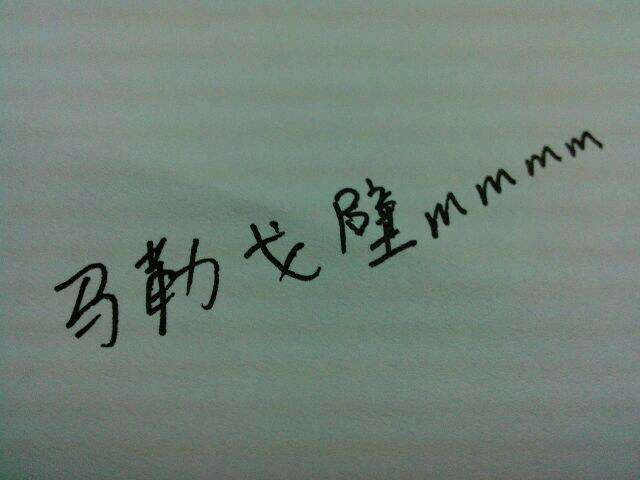 马勒戈壁mmmm